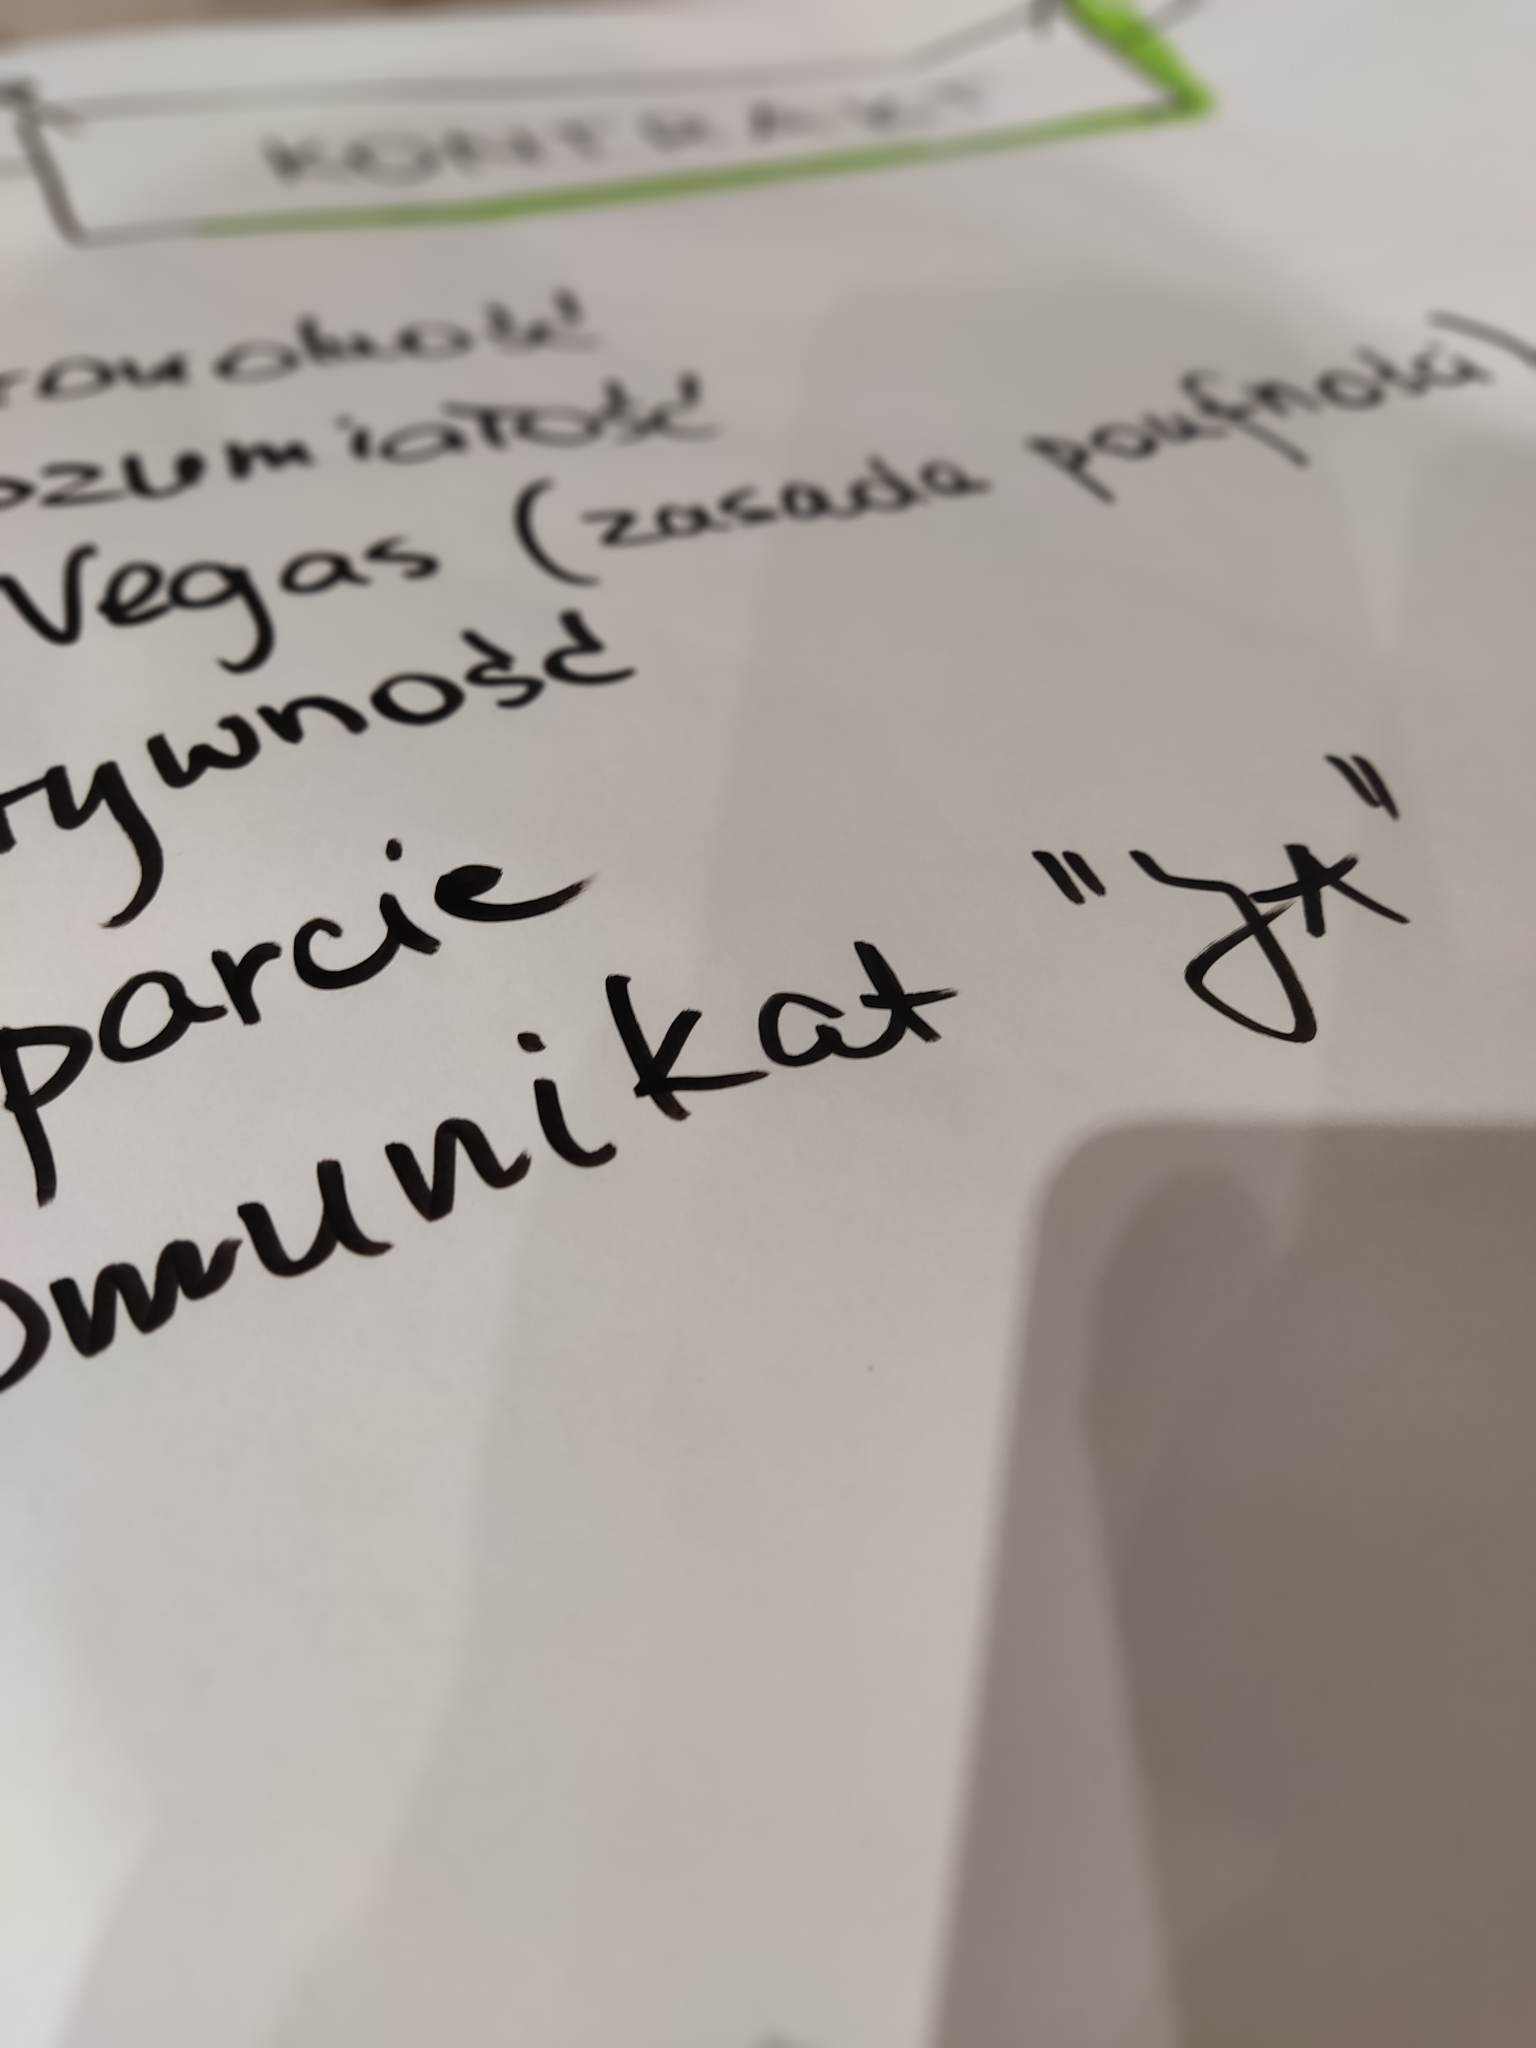 KONTRAKT
ozumiałość
Vegas (zasada poufności)
tywność
parcie
omunikat "Ja"